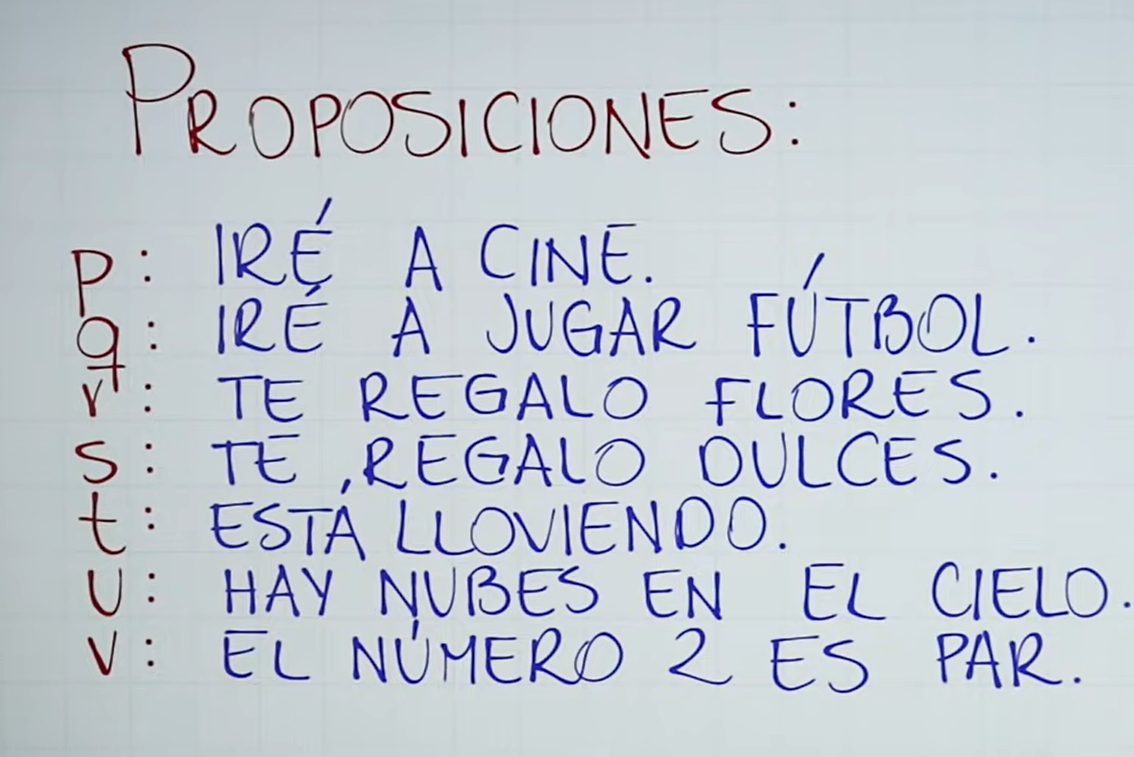 PROPOSICIONES:
p: IRÉ A CINE.
q: IRÉ A JUGAR FÚTBOL.
r: TE REGALO FLORES.
s: TE REGALO DULCES.
t: ESTÁ LLOVIENDO.
U: HAY NUBES EN EL CIELO.
V: EL NÚMERO 2 ES PAR.